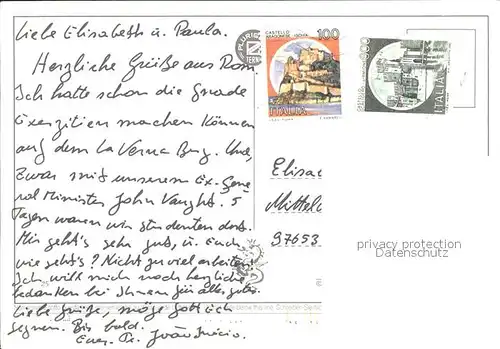 Liebe Elisabeth u. Paula.
Herzliche Grüße aus Rom.
Ich hatte schon die Gnade
Exerzitien machen können
auf dem La Verna Berg. Und,
zwar mit unserem Ex-Gene
ral Minister John Vaughn. 5
Tagen waren wir Studenten dort.
Mir geht's sehr gut, u. Euch,
wie geht's? Nicht zu viel arbeiten!
Ich will mich noch herzliche
bedanken bei Ihnen für alles gutes.
Liebe Grüße, möge Gott Euch
segnen. Bis bald.
Euer, Fr. João Inácio.
CASTELLO
ARAGONESE ISCHIA
100
ITALIA
600
ITALIA
Elisa
Mittel
97653
privacy protection
Datenschutz